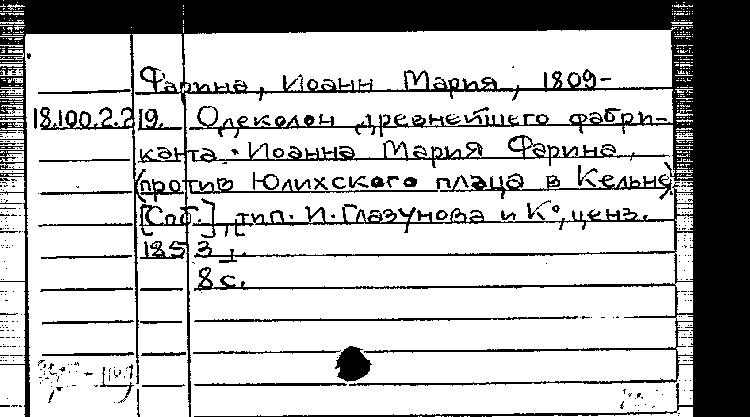 Фарина, Иоанн Мария, 1809-
18.100.2.219. Одеколон древнейшего фабри-
канта Иоанна Мария Фарина,
(против Юлихского плаца в Кельне)
[Спб.], тип. И. Глазунова и К°, ценз.
1853].
8 с.